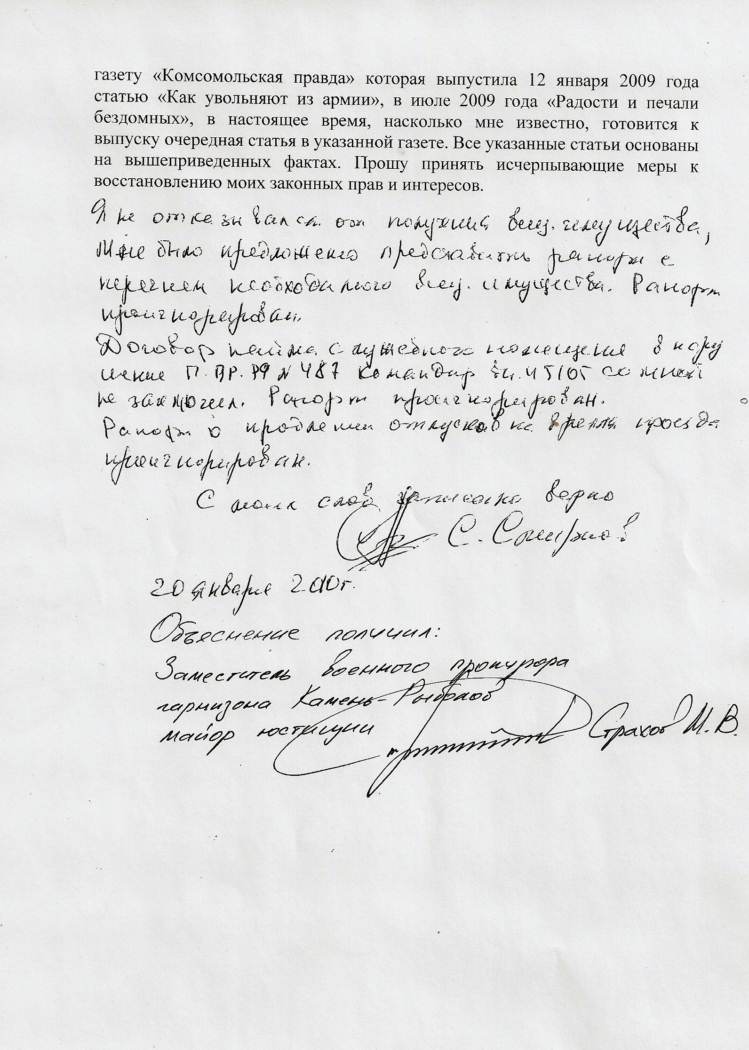 газету «Комсомольская правда» которая выпустила 12 января 2009 года
статью «Как увольняют из армии», в июле 2009 года «Радости и печали
бездомных», в настоящее время, насколько мне известно, готовится к
выпуску очередная статья в указанной газете. Все указанные статьи основаны
на вышеприведенных фактах. Прошу принять исчерпывающие меры к
восстановлению моих законных прав и интересов.
Я не отказывался от получения вещ. имущества,
Мне было предложено представить рапорт с
перечнем необходимого вещ. имущества. Рапорт
проигнорирован.
Договор найма служебного помещения в нару
шение П.ПР.РФ № 487 командир 45105 со мной
не заключил. Рапорт проигнорирован.
Рапорт о продлении отпусков на время проезда
проигнорирован.
С моих слов записано верно
С. Смирнов
20 января 2010г.
Объяснение получил:
Заместитель военного прокурора
гарнизона Камень-Рыболов
майор юстиции Страхов М.В.